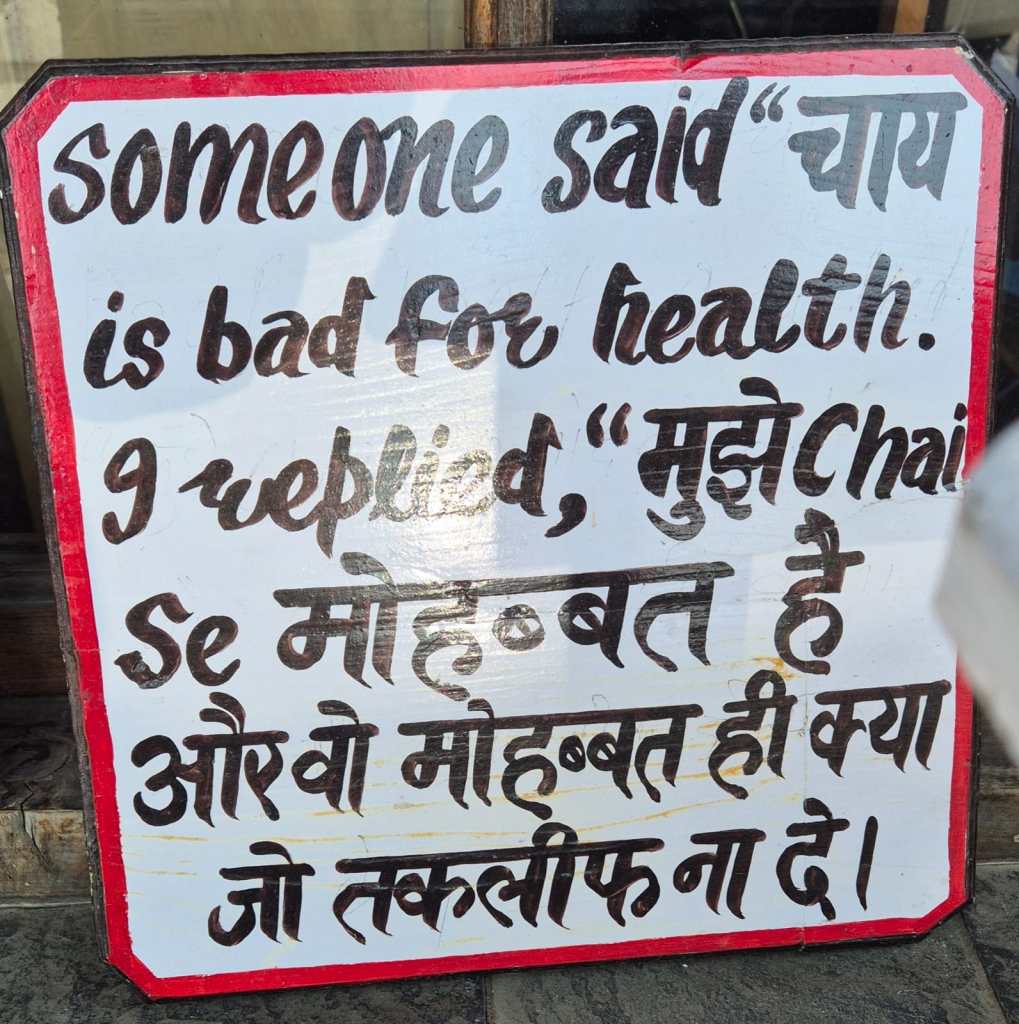 someone said “चाय
is bad for health.
I replied, “मुझे Chai
Se मोहब्बत है
और वो मोहब्बत ही क्या
जो तकलीफ ना दे।